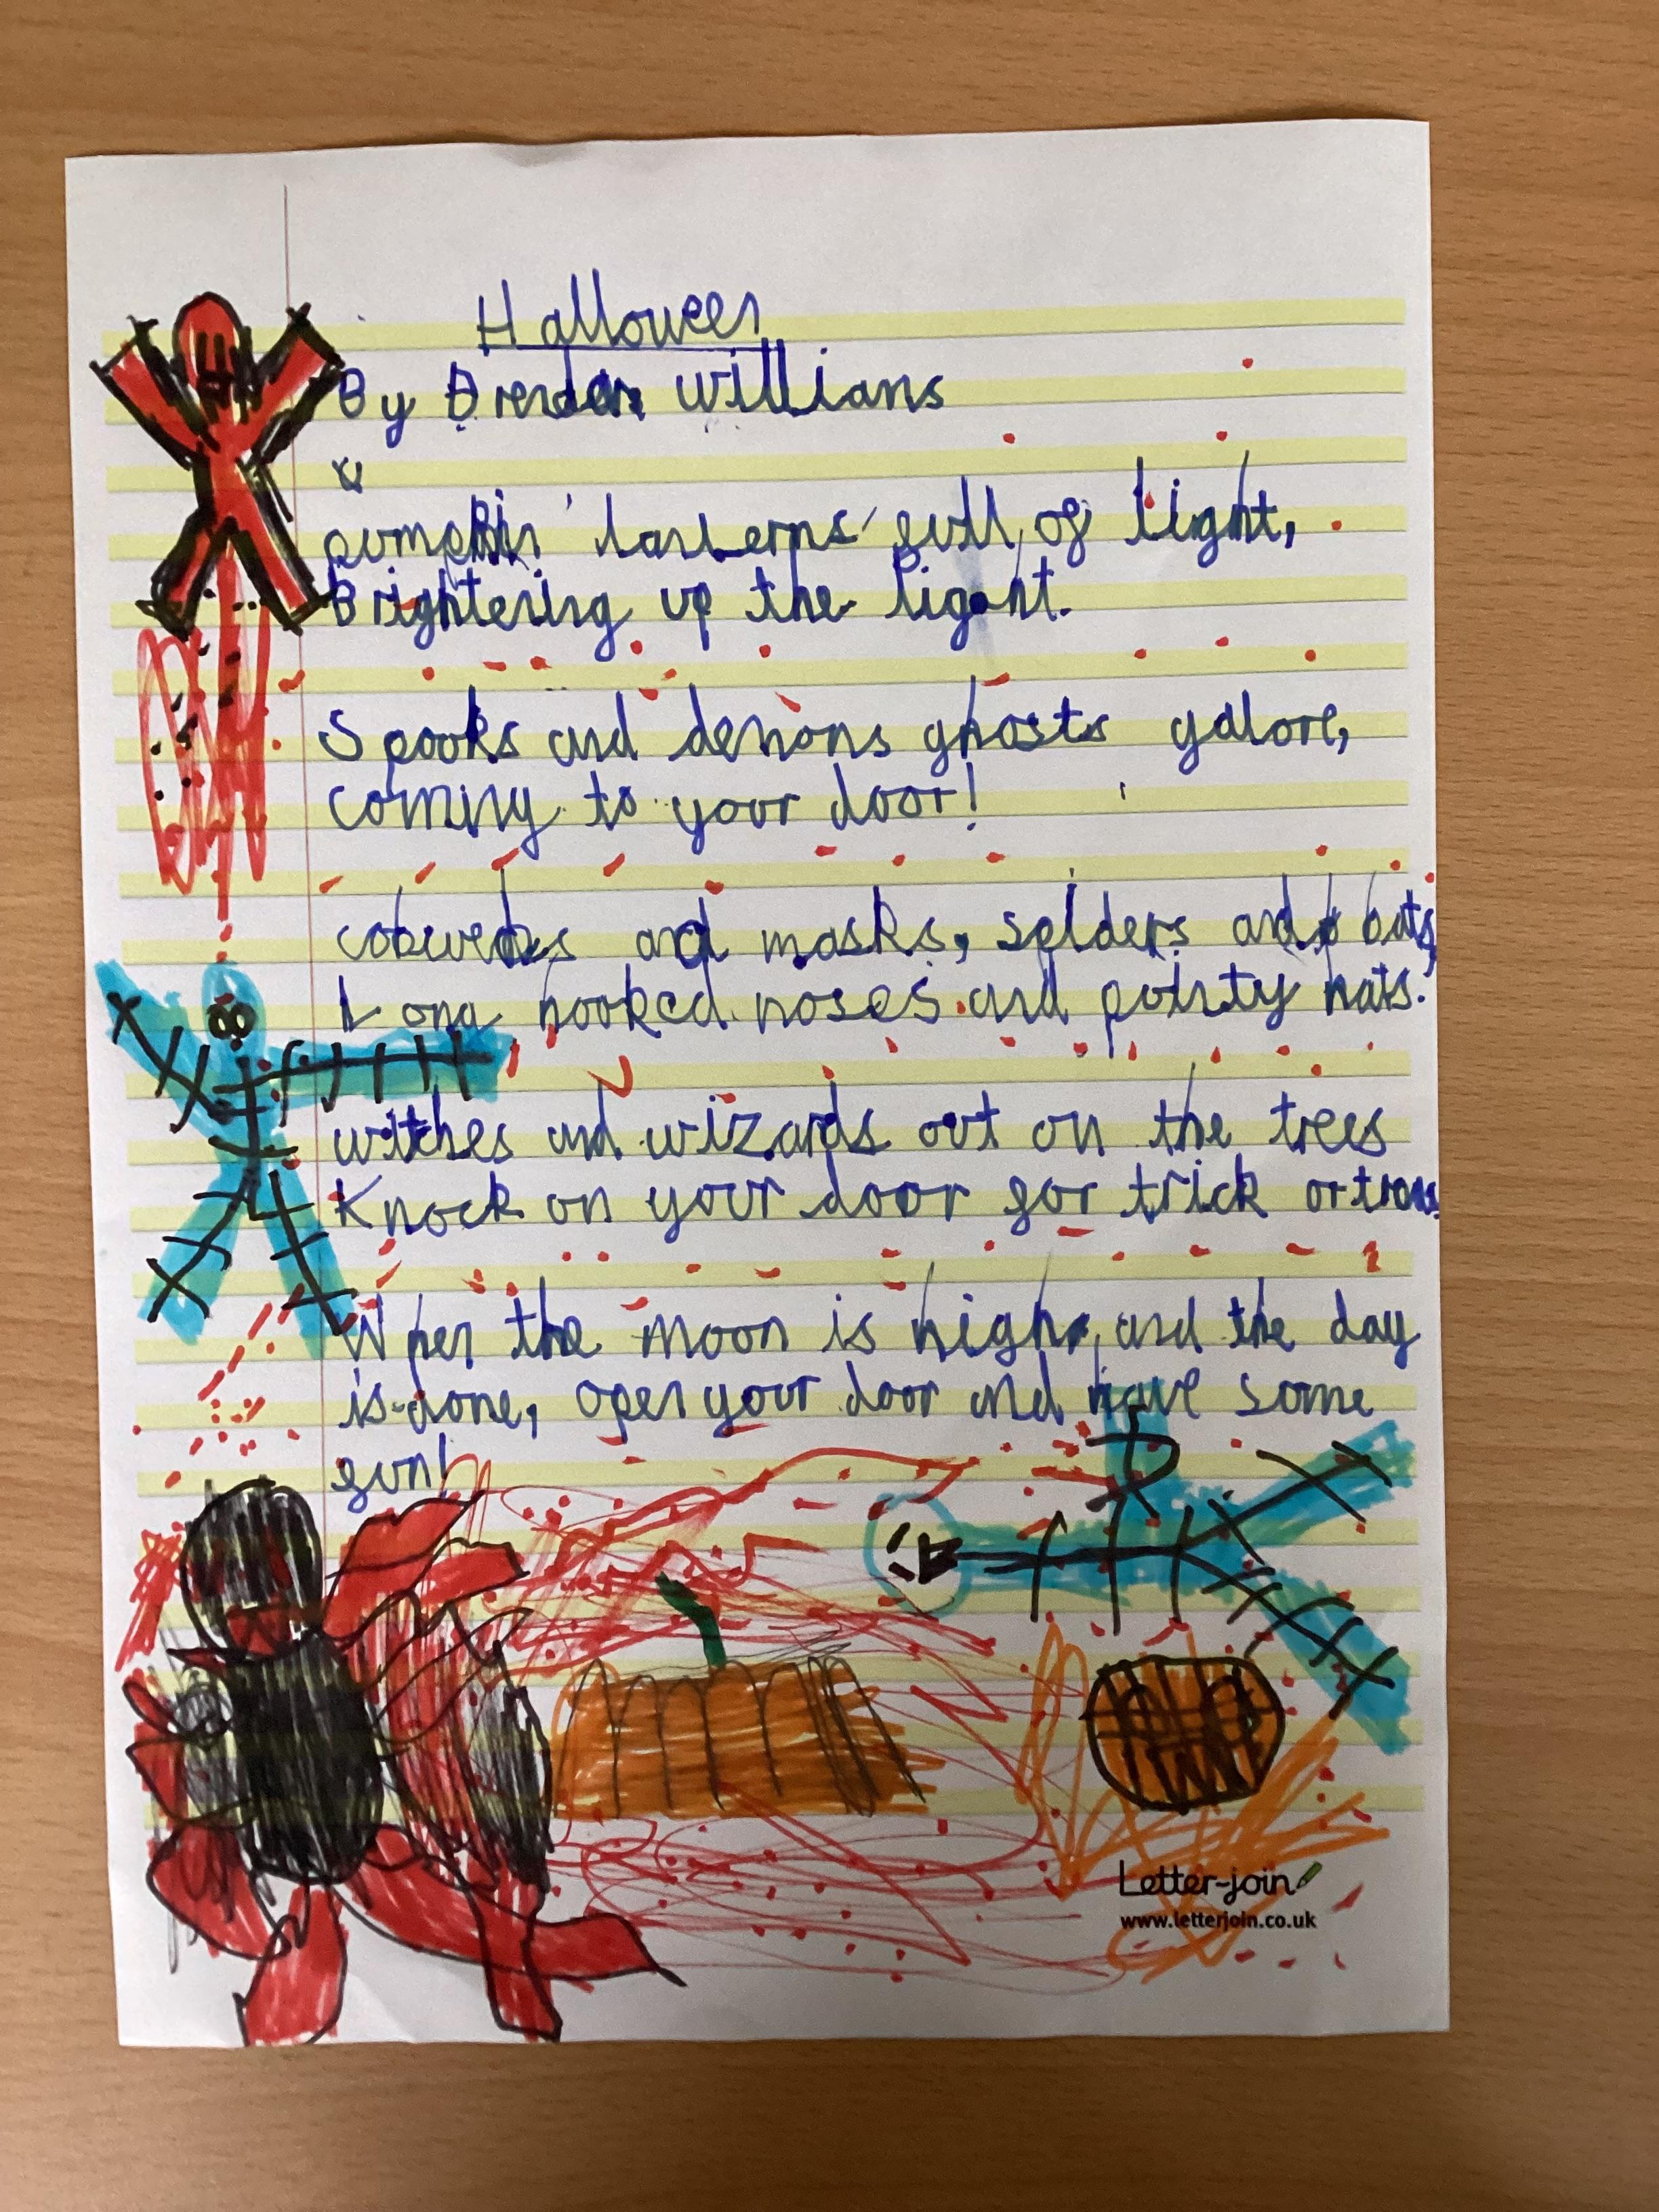 Halloween
By Brendan Willians
pumpkin lanterns full of light,
Brightening up the light.
Spooks and demons ghosts galore,
coming to your door!
cobwebs and masks, spiders and bats,
Long hooked noses and pointy hats.
witches and wizards out on the trees
Knock on your door for trick or
When the moon is high, and the day
is done, open your door and have some
fun!
Letter-join
www.letterjoin.co.uk